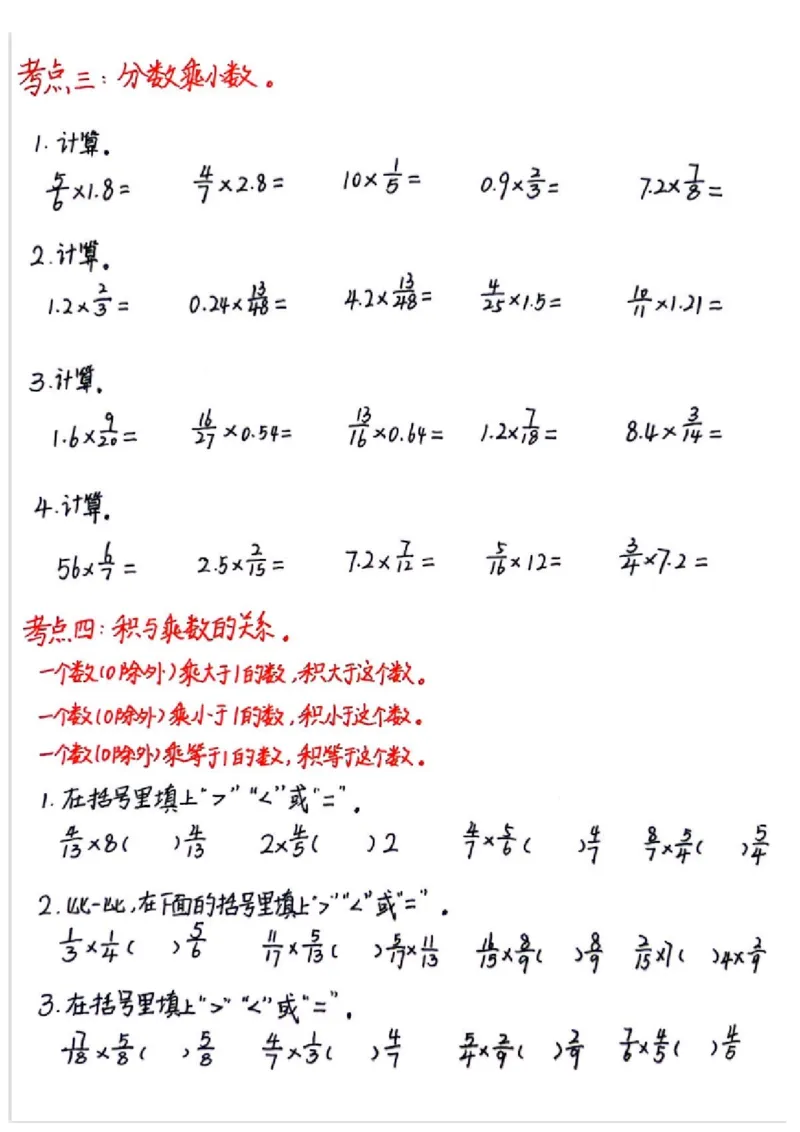 考点三：分数乘小数。
1. 计算。
5/6×1.8= 4/7×2.8= 10×1/5= 0.9×2/3= 7.2×7/8=
2. 计算。
1.2×2/3= 0.24×13/48= 4.2×13/48= 4/25×1.5= 10/11×1.21=
3. 计算。
1.6×9/20= 16/27×0.54= 13/16×0.64= 1.2×7/18= 8.4×3/14=
4. 计算。
56×6/7= 2.5×2/15= 7.2×7/12= 5/16×12= 3/4×7.2=
考点四：积与乘数的关系。
一个数(0除外)乘大于1的数,积大于这个数。
一个数(0除外)乘小于1的数,积小于这个数。
一个数(0除外)乘等于1的数,积等于这个数。
1. 在括号里填上“>”“<”或“=”。
4/13×8( )4/13 2×4/5( )2 4/7×5/6( )4/7 8/7×5/4( )5/4
2. 比一比,在下面的括号里填上“>”“<”或“=”。
1/3×1/4( )5/6 11/17×5/13( )5/17×11/13 16/15×8/9( )8/9 2/15×7( )4×2/9
3. 在括号里填上“>”“<”或“=”。
17/18×5/8( )5/8 4/7×1/3( )4/7 5/4×2/9( )2/9 7/6×4/5( )4/5